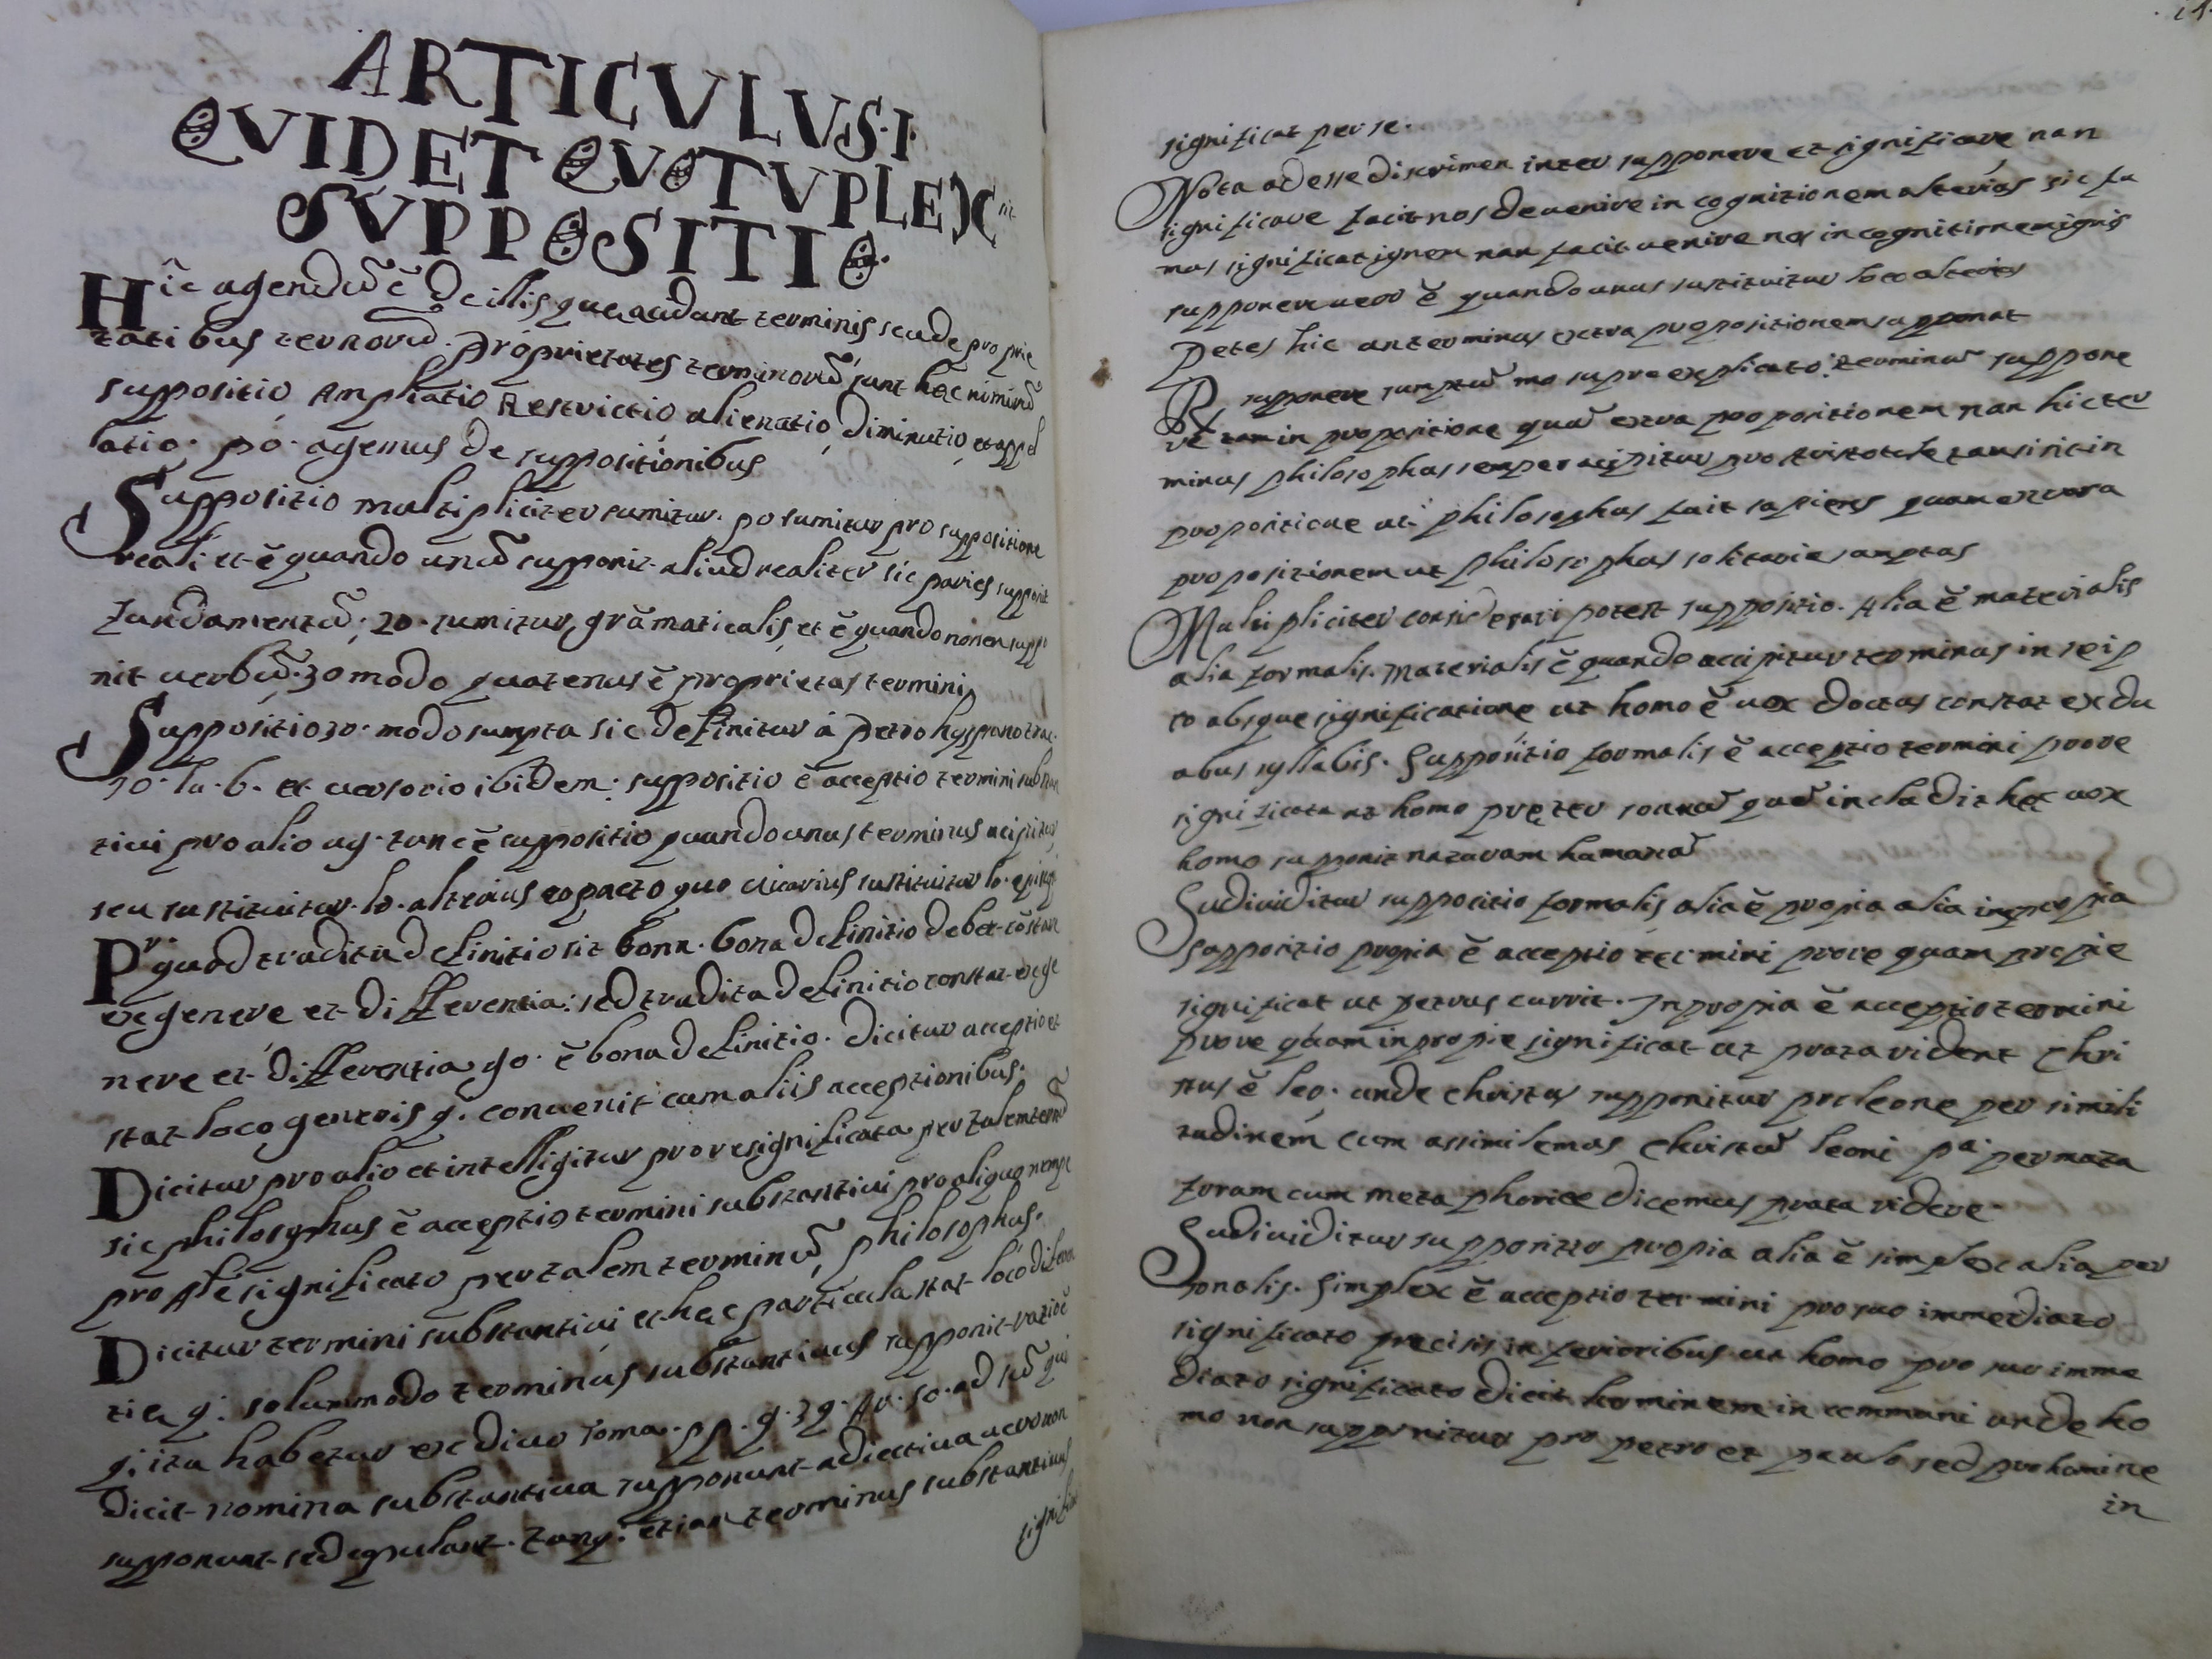 ARTICVLVS·I·
QVID ET QVOTVPLEX sit
SVPPOSITIO·
Hic agendũ ẽ de illis que acidunt terminis seu de proprie
tatibus terñorũ· proprietates terminorũ sunt hęc nimirũ
suppositio, Ampliatio Restrictio, alienatio, Diminutio, et appel
latio· po· agemus de suppositionibus
Suppositio multipliciter sumitur· po sumitur pro suppositione
reali et ẽ quando unũ supponit aliud realiter sic paries supponit
fundamentũ; 2o· sumitur, grãmaticalis, et ẽ quando nomen suppo
nit uerbũ· 3o modo quatenus ẽ proprietas termini
Suppositio 3o· modo sumpta sic definitur á Petro hysprono trac·
lu· 6· et uersorio ibidem: suppositio ẽ acceptio termini substan
tiui pro alio ug· tunc ẽ suppositio quando unus terminus acipitur,
seu sustituitur· lo· alterius eo pacto quo uicarius sustituitur lo·
Pr· quod tradita definitio sit bona· bona definitio debet cõstare
ex genere et differentia: sed tradita definitio constat ex ge
nere et differentia, go· ẽ bona definitio· Dicitur acceptio et
stat loco generis q· conuenit cum aliis acceptionibus·
Dicitur pro alio et intelligitur pro re significata per talem termũ
sic philosophus ẽ acceptio termini substantiui pro aliquo nempe
pro Ajle significato per talem terminũ, philosophus·
Dicitur termini substantiui et hęc particula stat loco differen
tie, q· solummodo terminus substantiuus supponit ratio ẽ
q· ita habetur ex diuo Toma· pp· q· 39· Ar· 5o· ad 5ũ qui
dicit nomina substantiua supponunt adiectiua uero non
supponunt sed copulant· tum q· etiam terminus substantiuus
significat
significat per se·
Nota ad esse discrimen inter supponere et significare nan
significare facit nos deuenire in cognitionem alterius sic fu
mus significat ignem nan facit uenire nos in cognitionem ignis
supponere uero ẽ quando unus sustituitur loco alterius
Petes hic an terminus extra propositionem supponat
R supponere sumptũ mo supra explicato; terminũ suppone
re tam in propositione quã extra propositionem nan hic ter
minus philosophus semper acipitur pro Aristotele tam si sit in
propositione ut philosophus fuit sapiens quam extra
propositionem ut philosophus solitarie sumptus
Multipliciter considerari potest suppositio· Alia ẽ materialis
alia formalis· Materialis ẽ quando accipitur terminus in se ip
so absque significatione ut homo ẽ uox Doctus constat ex du
abus syllabis· Suppositio formalis ẽ acceptio termini pro re
significata ut homo pręter sonũ quẽ includit hęc uox
homo supponit naturam humanã
Sudiuiditur suppositio formalis alia ẽ propia alia inpropia
Suppositio propia ẽ acceptio termini pro re quam propie
significat ut petrus currit· Inpropia ẽ acceptio termini
pro re quam inpropie significat ut prata rident Chri
stus ẽ leo· unde christus supponitur pro leone per simili
tudinem cum assimilemus christũ leoni pa· per meta
foram cum metaphorice dicemus prata ridere·
Sudiuiditur suppositio propia alia ẽ simplex alia per
sonalis· Simplex ẽ acceptio termini pro suo immediato
significato precisis inferioribus ut homo pro suo imme
diato significato dicit hominem in communi unde ho
mo non supponitur pro petro et paulo sed pro homine
in